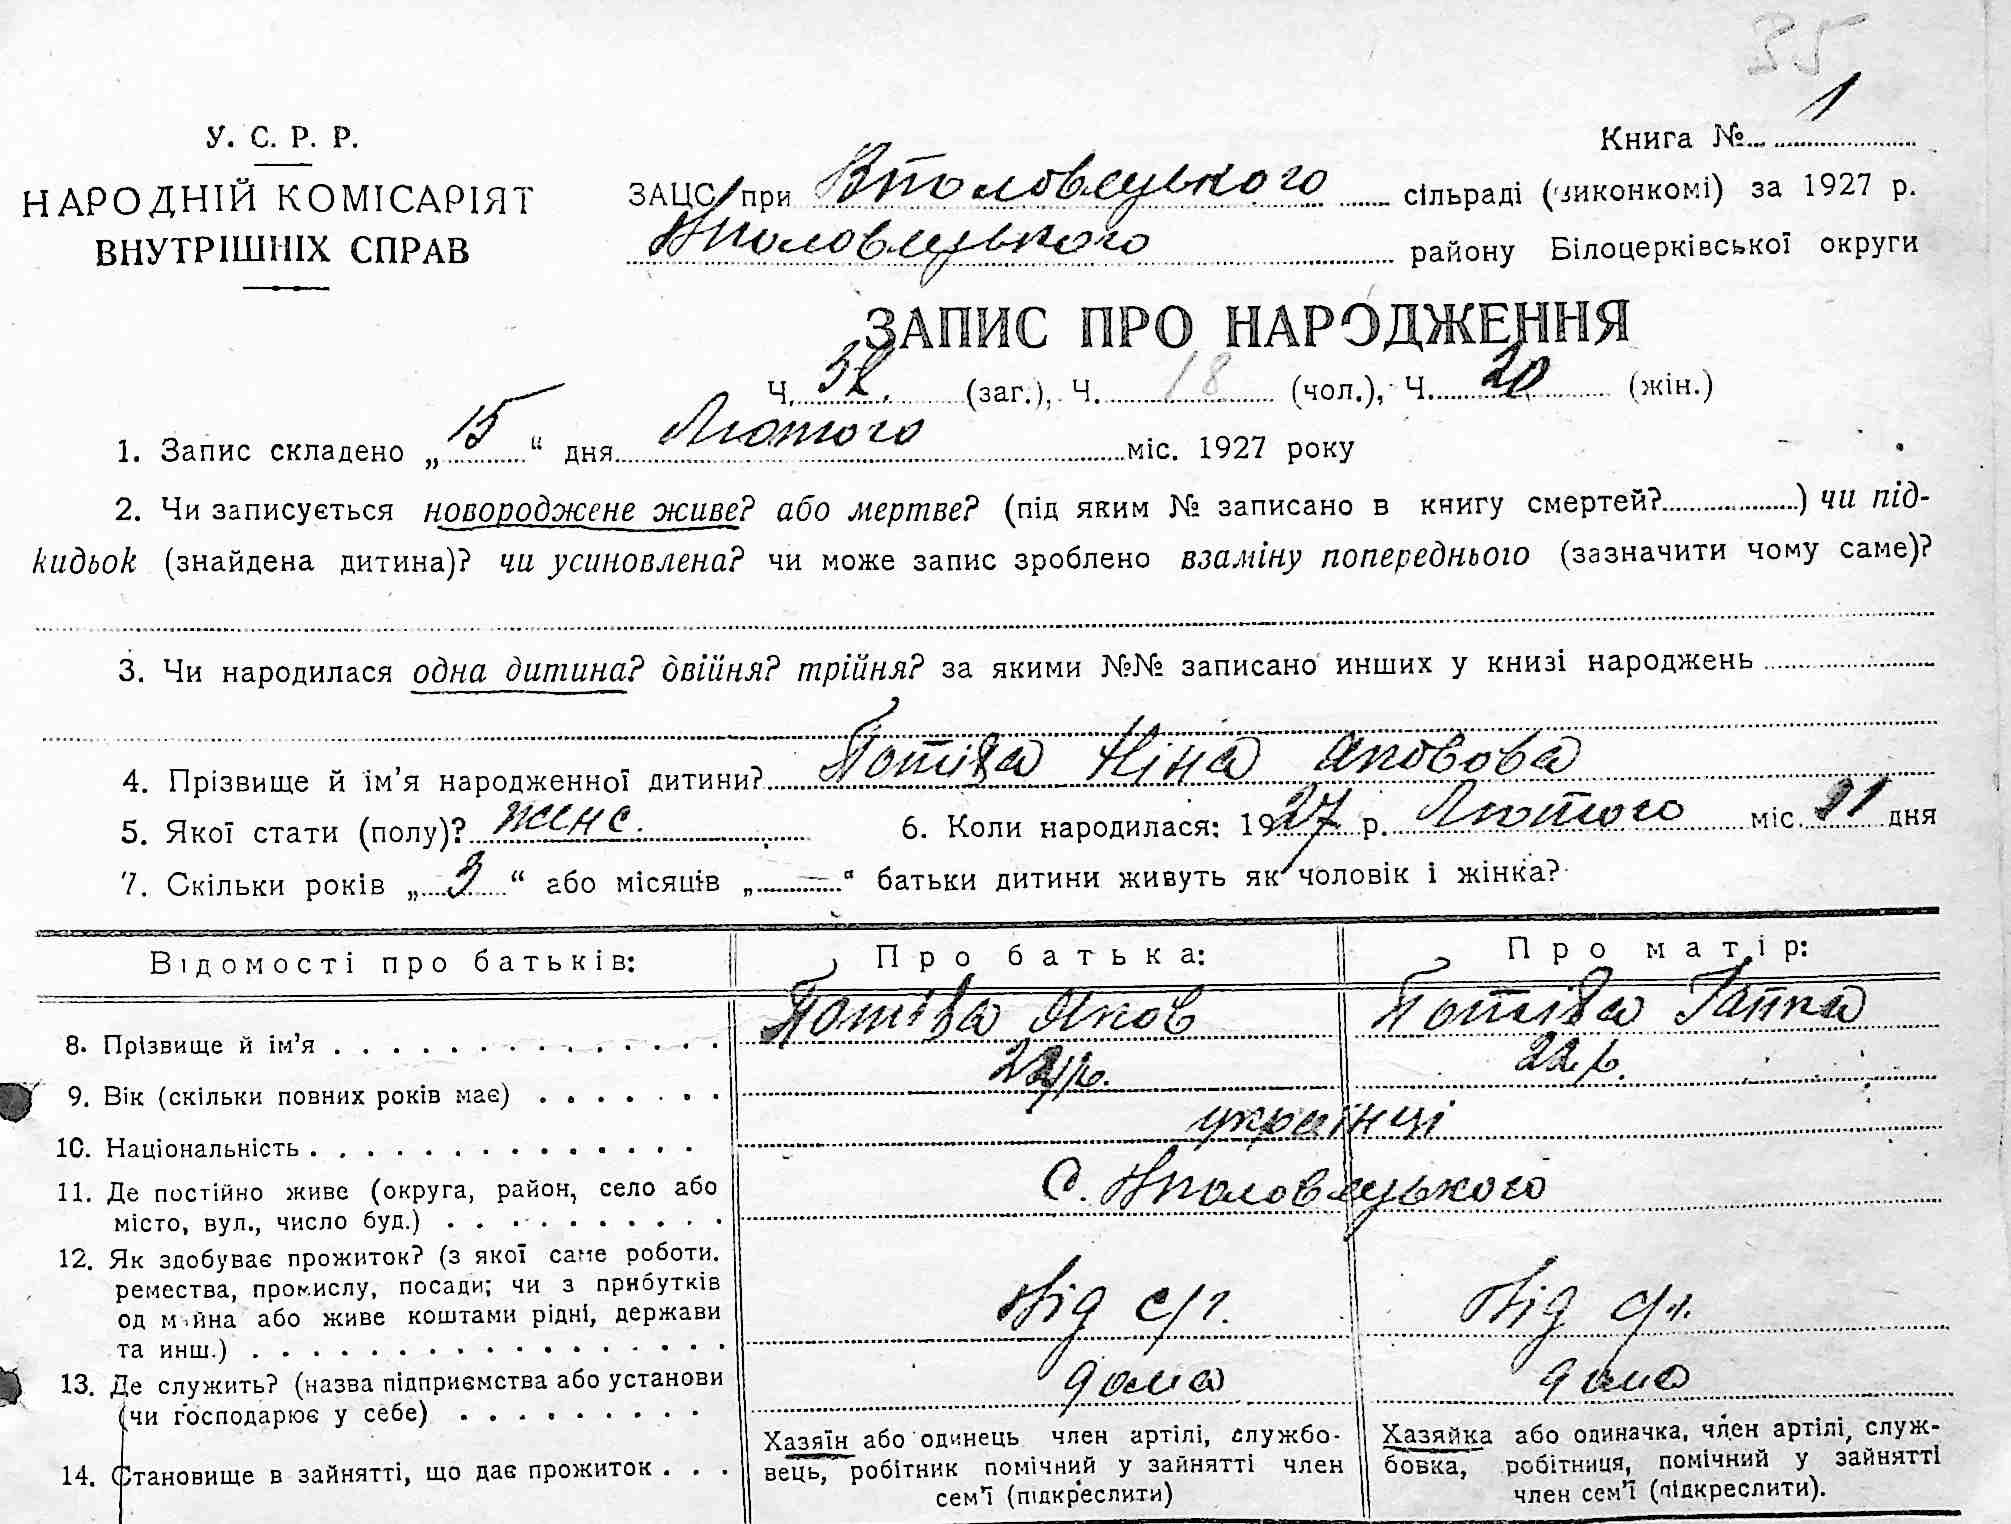 35
У. С. Р. Р.
НАРОДНІЙ КОМІСАРІЯТ
ВНУТРІШНІХ СПРАВ
Книга № 1
ЗАЦС при Вполовецького сільраді (виконкомі) за 1927 р.
Вполовецького району Білоцерківської округи
ЗАПИС ПРО НАРОДЖЕННЯ
Ч. 38 (заг.), Ч. 18 (чол.), Ч. 20 (жін.)
1. Запис складено „ 15 “ дня Лютого міс. 1927 року
2. Чи записується новороджене живе? або мертве? (під яким № записано в книгу смертей? ) чи під-
кидьок (знайдена дитина)? чи усиновлена? чи може запис зроблено взаміну попереднього (зазначити чому саме)?
3. Чи народилася одна дитина? двійня? трійня? за якими №№ записано инших у книзі народжень
4. Прізвище й ім’я народженної дитини? Потіва Ніна Яковова
5. Якої стати (полу)? женс. 6. Коли народилася: 1927 р. Лютого міс. дня
7. Скільки років „ 3 “ або місяців „ — “ батьки дитини живуть як чоловік і жінка?
Відомості про батьків: Про батька: Про матір:
8. Прізвище й ім’я Потіва Яков Потіва Гапка
9. Вік (скільки повних років має) 22 р.
10. Національність українці
11. Де постійно живе (округа, район, село або
місто, вул., число буд.) С. Вполовецького
12. Як здобуває прожиток? (з якої саме роботи.
ремества, промислу, посади; чи з прибутків
од майна або живе коштами рідні, держави
та инш.) Від с/г. Від с/г.
13. Де служить? (назва підприємства або установи
(чи господарює у себе) дома дома
14. Становище в зайнятті, що дає прожиток
Хазяїн або одинець член артілі, службо-
вець, робітник помічний у зайнятті член
сем’ї (підкреслити)
Хазяйка або одиначка, член артілі, служ-
бовка, робітниця, помічний у зайнятті
член сем’ї (підкреслити).